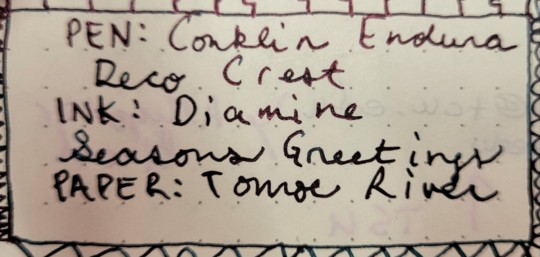 PEN: Conklin Endura
Deco Crest
INK: Diamine
Seasons Greetings
PAPER: Tomoe River